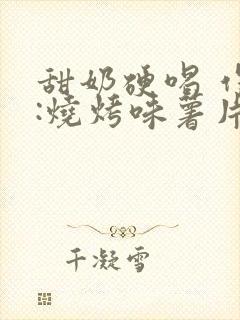 甜奶硬喝
:燒烤味薯片
千凝雪